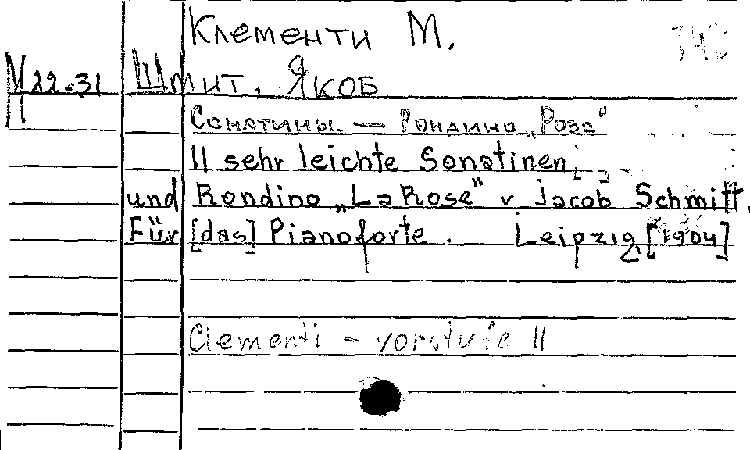 Клементи М.
M 22-31 Шмит, Якоб
Сонатины — Рондино „Роза"
11 sehr leichte Sonatinen
und Rondino „La Rose" v Jacob Schmitt.
Für [das] Pianoforte. Leipzig [1904]
Clementi - vorstufe 11